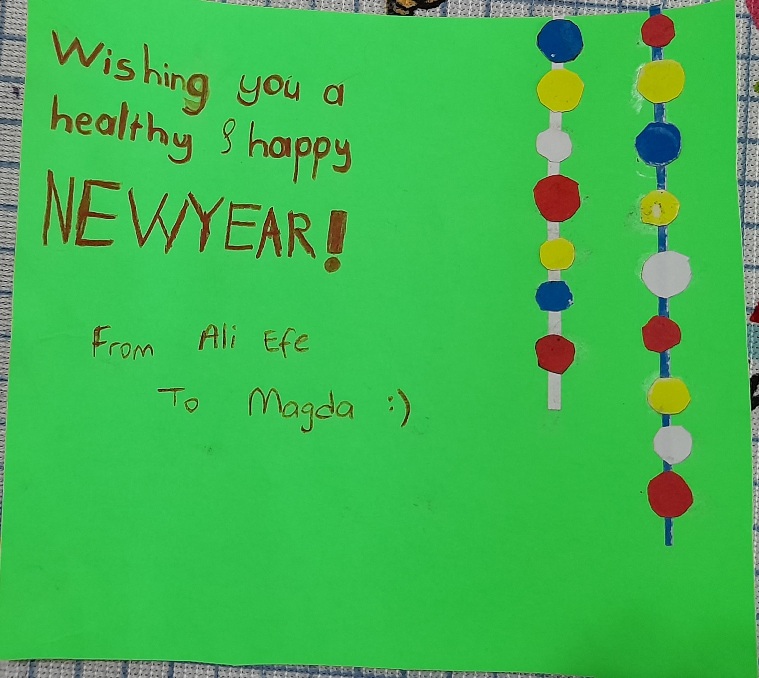 Wishing you a
healthy & happy
NEWYEAR!
From Ali Efe
To Magda :)